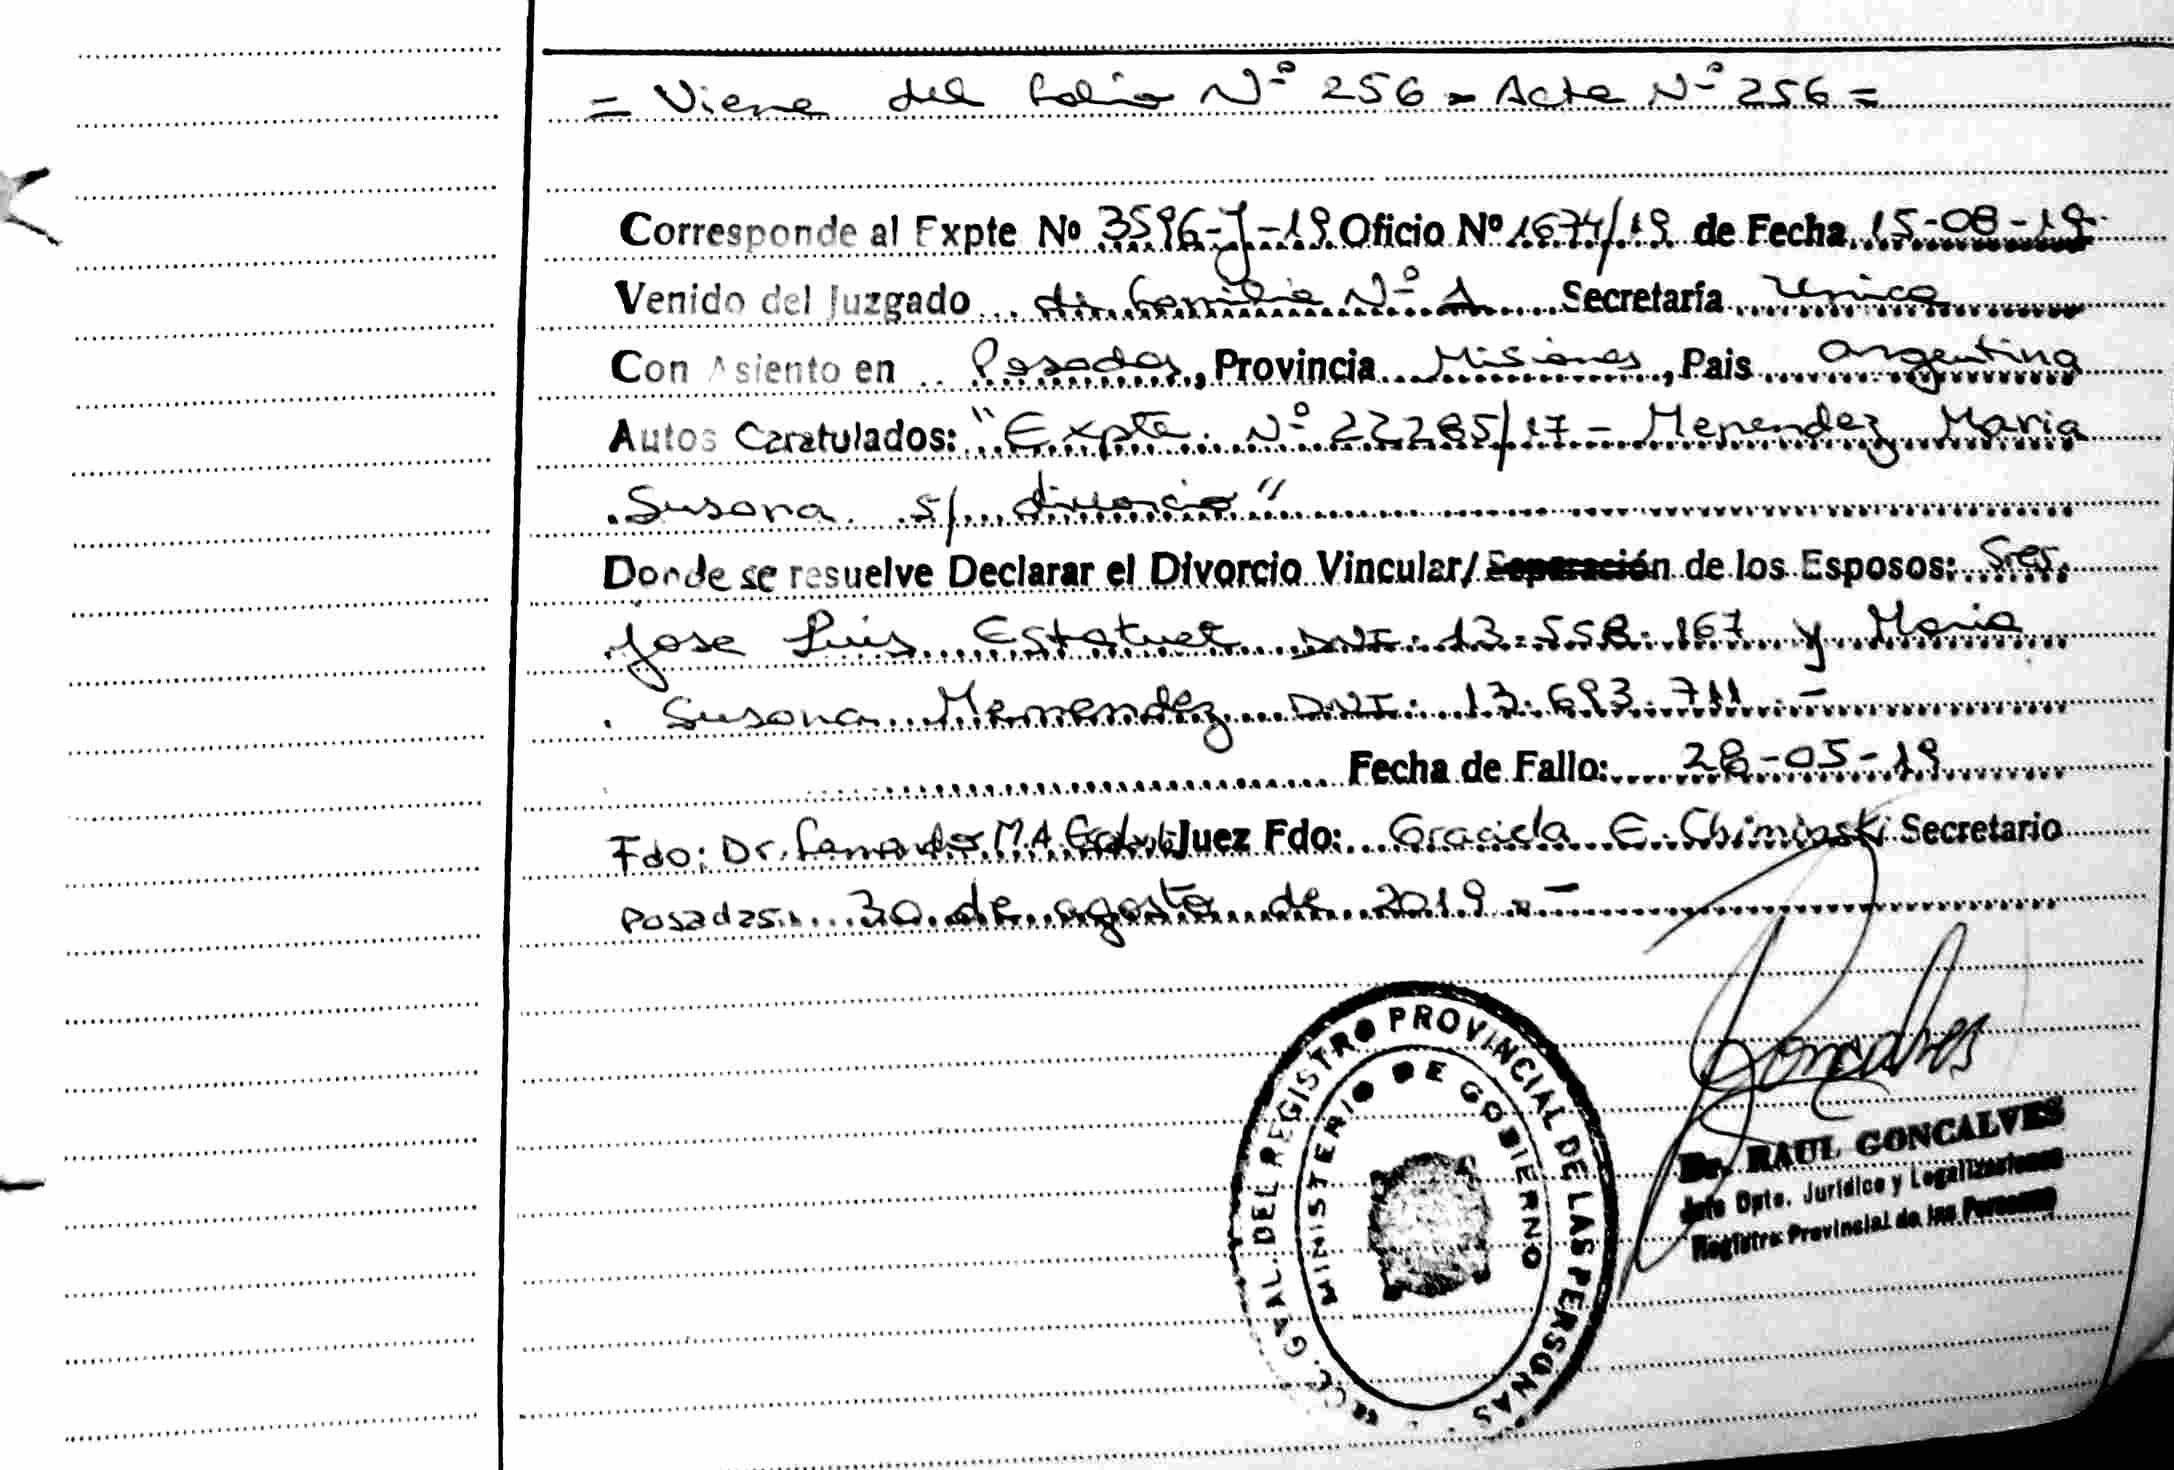 = Viene del folio Nº 256 - Acta Nº 256 =
Corresponde al Expte Nº 3596-J-19 Oficio Nº 1674/19 de Fecha 15-08-19
Venido del Juzgado de familia Nº 1 Secretaría Unica
Con Asiento en Posadas, Provincia Misiones, Pais Argentina
Autos Caratulados: "Expte. Nº 22285/17 - Menendez Maria
Susana s/ divorcio"
Donde se resuelve Declarar el Divorcio Vincular/ Separación de los Esposos: Sres.
Jose Luis Estatuet DNI: 13.558.167 y Maria
Susana Menendez DNI: 13.693.711 -
Fecha de Fallo: 28-05-19
Fdo: Dr. Fernando M.A. Juez Fdo: Graciela E. Secretario
Posadas 30 de agosto de 2019 -
Goncalves
Dr. RAUL GONCALVES
Jefe Dpto. Jurídico y Legalizaciones
Registro Provincial de las Personas
GRAL. DEL REGISTRO PROVINCIAL DE LAS PERSONAS
MINISTERIO DE GOBIERNO